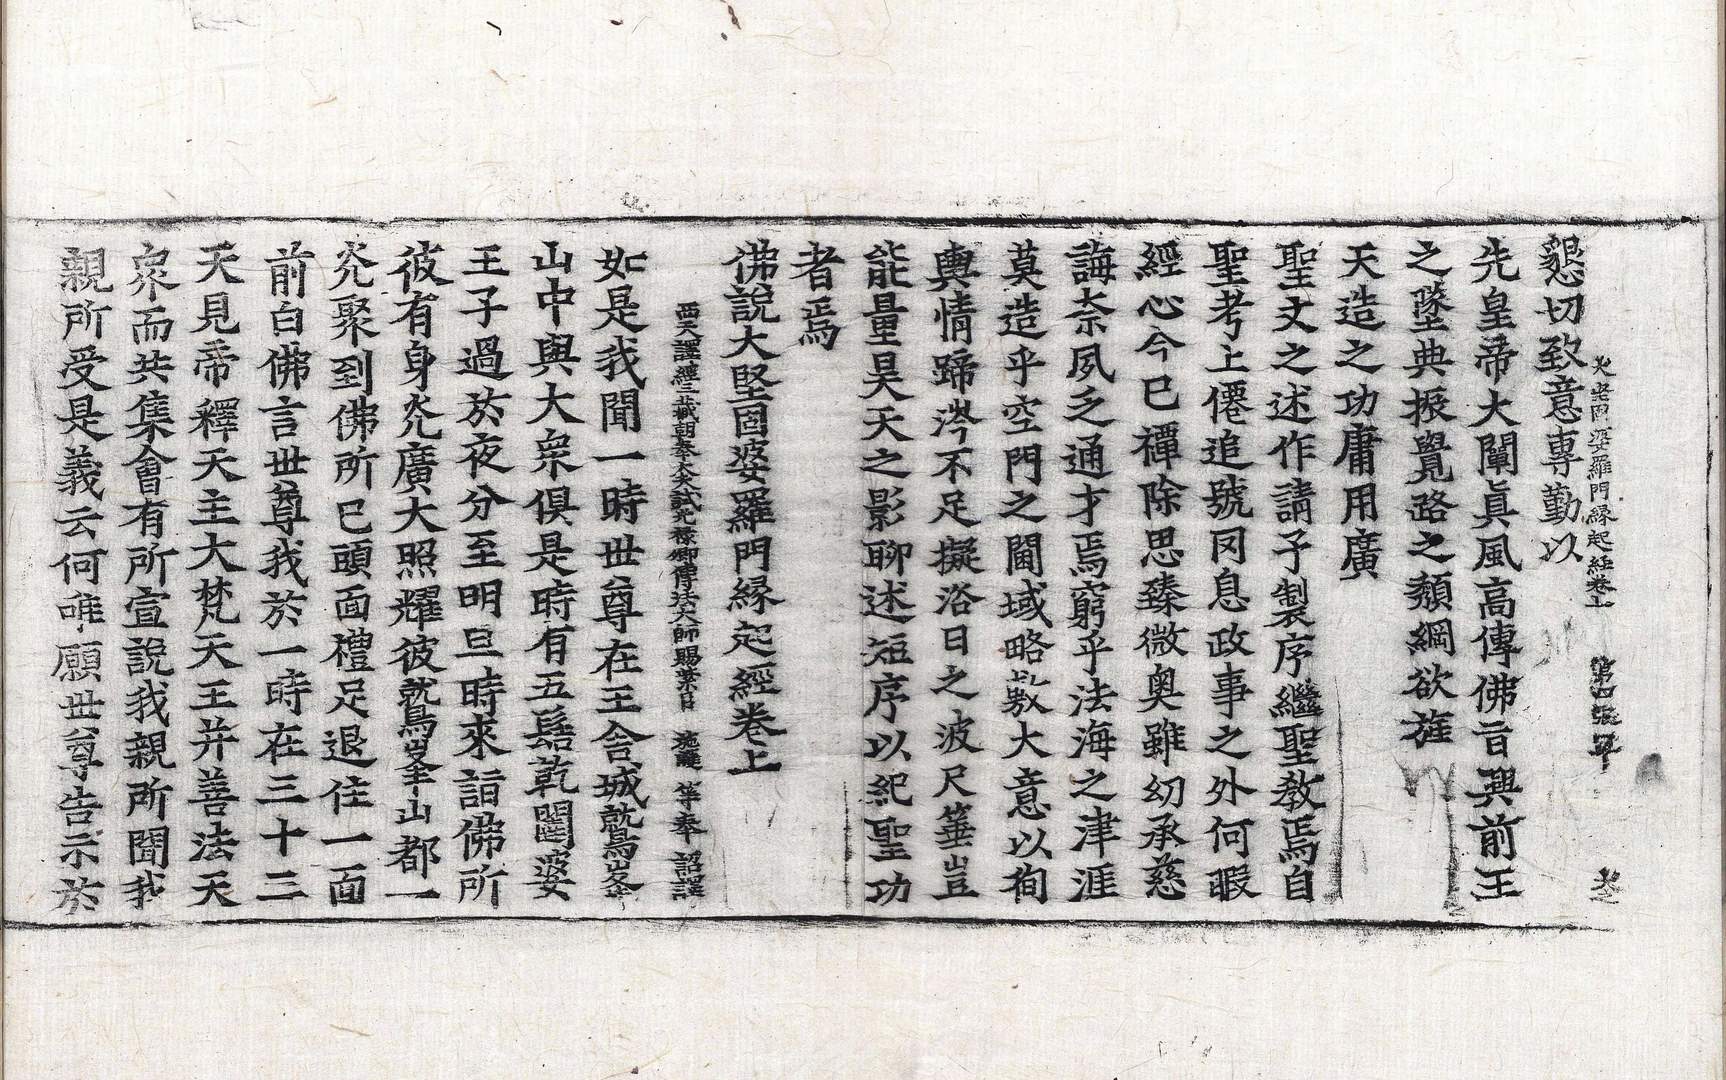 大堅固婆羅門緣起經卷上 第四張
懇切致意專勤以
先皇帝大闡眞風高傳佛旨興前王
之墜典振覺路之頹綱欲旌
天造之功庸用廣
聖文之述作請予製序繼聖教焉自
聖考上僊追號罔息政事之外何暇
經心今已禫除思臻微奥雖幼承慈
誨柰夙乏通才焉窮乎法海之津涯
莫造乎空門之閫域略敷大意以徇
輿情蹄涔不足擬浴日之波尺箠豈
能量昊天之影聊述短序以紀聖功
者焉
佛說大堅固婆羅門緣起經卷上
西天譯經三藏朝奉大夫試光祿卿傳法大師賜紫臣 施護 等奉 詔譯
如是我聞一時世尊在王舍城鷲峯
山中與大衆俱是時有五髻乾闥婆
王子過於夜分至明旦時來詣佛所
彼有身光廣大照耀彼鷲峯山都一
光聚到佛所已頭面禮足退住一面
前白佛言世尊我於一時在三十三
天見帝釋天主大梵天王并善法天
衆而共集會有所宣說我親所聞我
親所受是義云何唯願世尊告示於